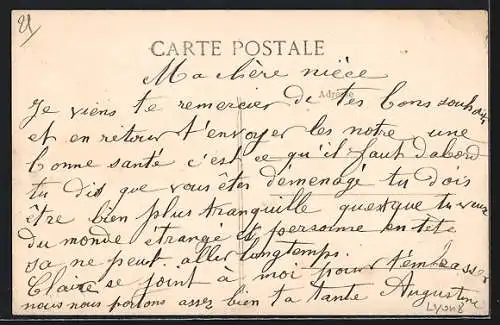 CARTE POSTALE
Ma chère nièce
Adresse
Je viens te remercier de tes bons souhaits
et en retour t'envoyer les notre une
bonne santé c'est ce qu'il faut dabord
tu dis que vous êtes démenagé tu dois
être bien plus tranquille quesque tu veux
du monde étrangé et personne en tete
sa ne peut aller longtemps.
Claire se joint à moi pour t'embrasser
nous nous portons assez bien ta tante Augustine
Lyon 8